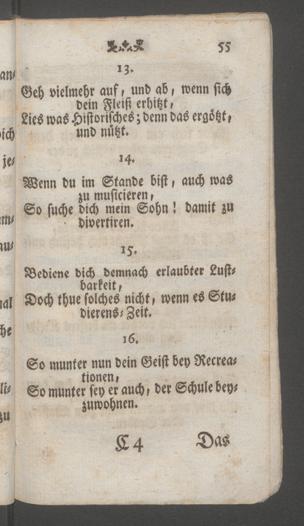 55
13.
Geh vielmehr auf, und ab, wenn sich
dein Fleiß erhitzt,
Lies was Historisches; denn das ergötzt,
und nützt.
14.
Wenn du im Stande bist, auch was
zu musicieren,
So suche dich mein Sohn! damit zu
divertiren.
15.
Bediene dich demnach erlaubter Lust-
barkeit,
Doch thue solches nicht, wenn es Stu-
dierens-Zeit.
16.
So munter nun dein Geist bey Recrea-
tionen,
So munter sey er auch, der Schule bey-
zuwohnen.
C 4 Das